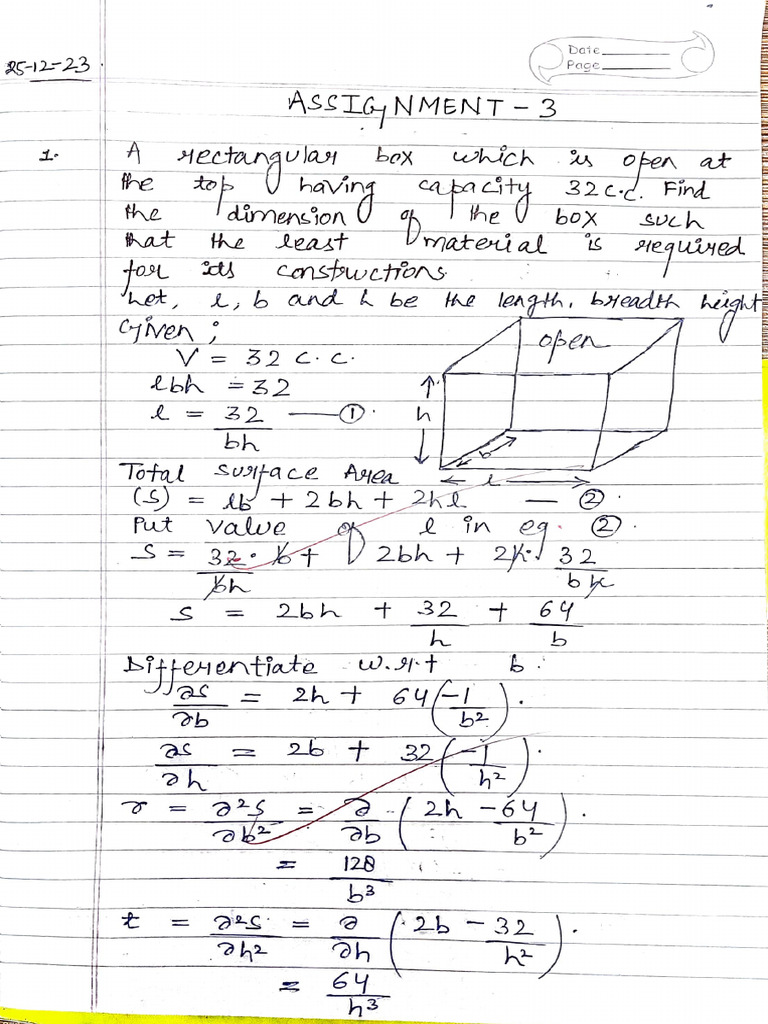 25-12-23.
Date
Page
ASSIGNMENT - 3
1. A rectangular box which is open at
the top having capacity 32 c.c. Find
the dimension of the box such
that the least material is required
for its constructions.
Let, l, b and h be the length, breadth height
Given ;
open
V = 32 c.c.
lbh = 32
l = 32/bh —— ①.
h
b
l
Total surface Area
(S) = lb + 2bh + 2hl — ②.
Put value of l in eq. ②.
S = 32/bh · b + 2bh + 2h · 32/bh
S = 2bh + 32/h + 64/b
Differentiate w.r.t b.
∂S/∂b = 2h + 64(-1/b²).
∂S/∂h = 2b + 32(-1/h²).
r = ∂²S/∂b² = ∂/∂b (2h - 64/b²).
= 128/b³
t = ∂²S/∂h² = ∂/∂h (2b - 32/h²).
= 64/h³